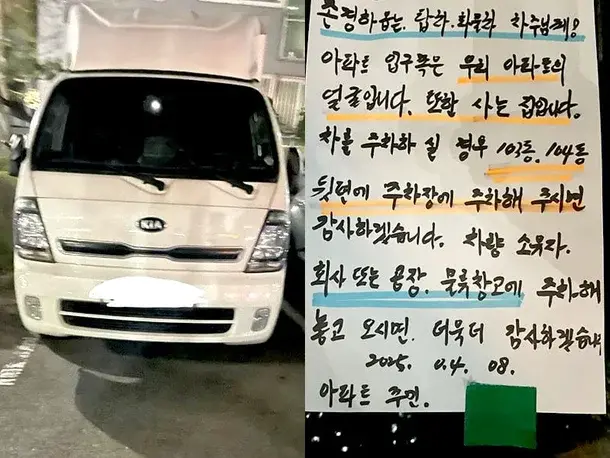 KIA
존경하옵는. 탑차. 화물차 차주님께!
아파트 입구쪽은 우리 아파트의
얼굴입니다. 또한 사는 집입니다.
차를 주차하 실 경우 103동. 104동
뒷편에 주차장에 주차해 주시면
감사하겠습니다. 차량 소유자.
회사 또는 공장. 물류창고에 주차해
놓고 오시면. 더욱더 감사하겠습니다
2025. 0.4. 08.
아파트 주민.